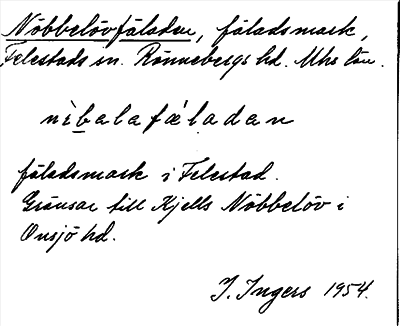 Nöbbelövfäladen, fäladsmark,
Felestads sn. Rönnebergs hd. Mhs län.
nìbalafæ̀ladan
fäladsmark i Felestad.
Gränsar till Kjells Nöbbelöv i
Onsjö hd.
I. Ingers 1954.